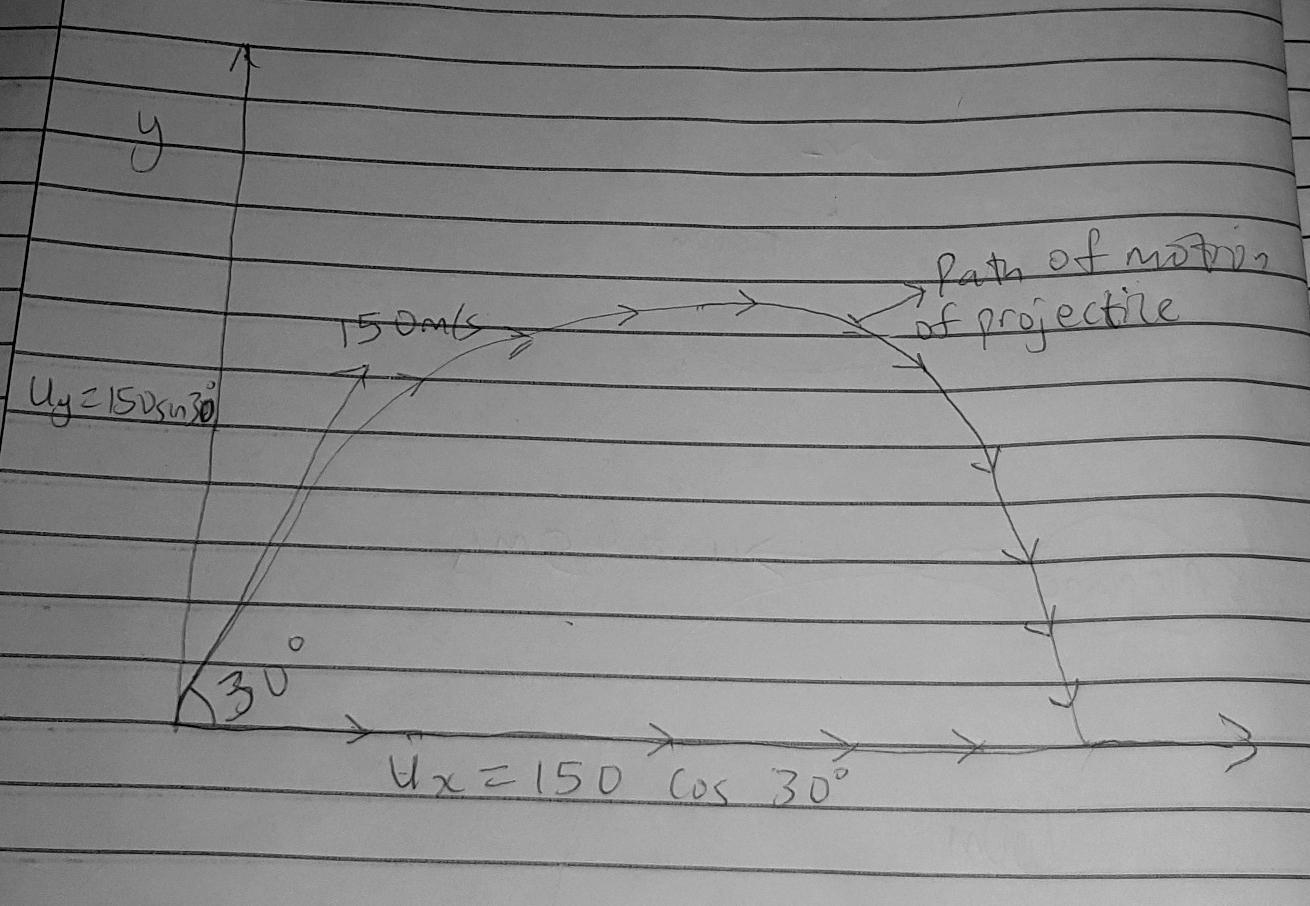 y
Path of motion
of projectile
150m/s
Uy=150sin30°
30°
Ux = 150 cos 30°